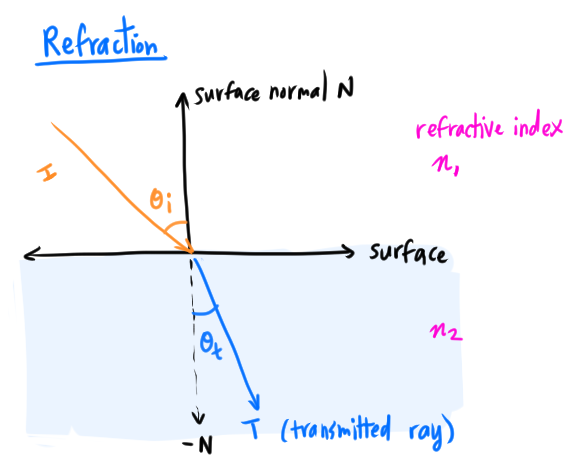 Refraction
surface normal N
refractive index
n₁
I
θi
surface
n₂
θt
-N
T (transmitted ray)